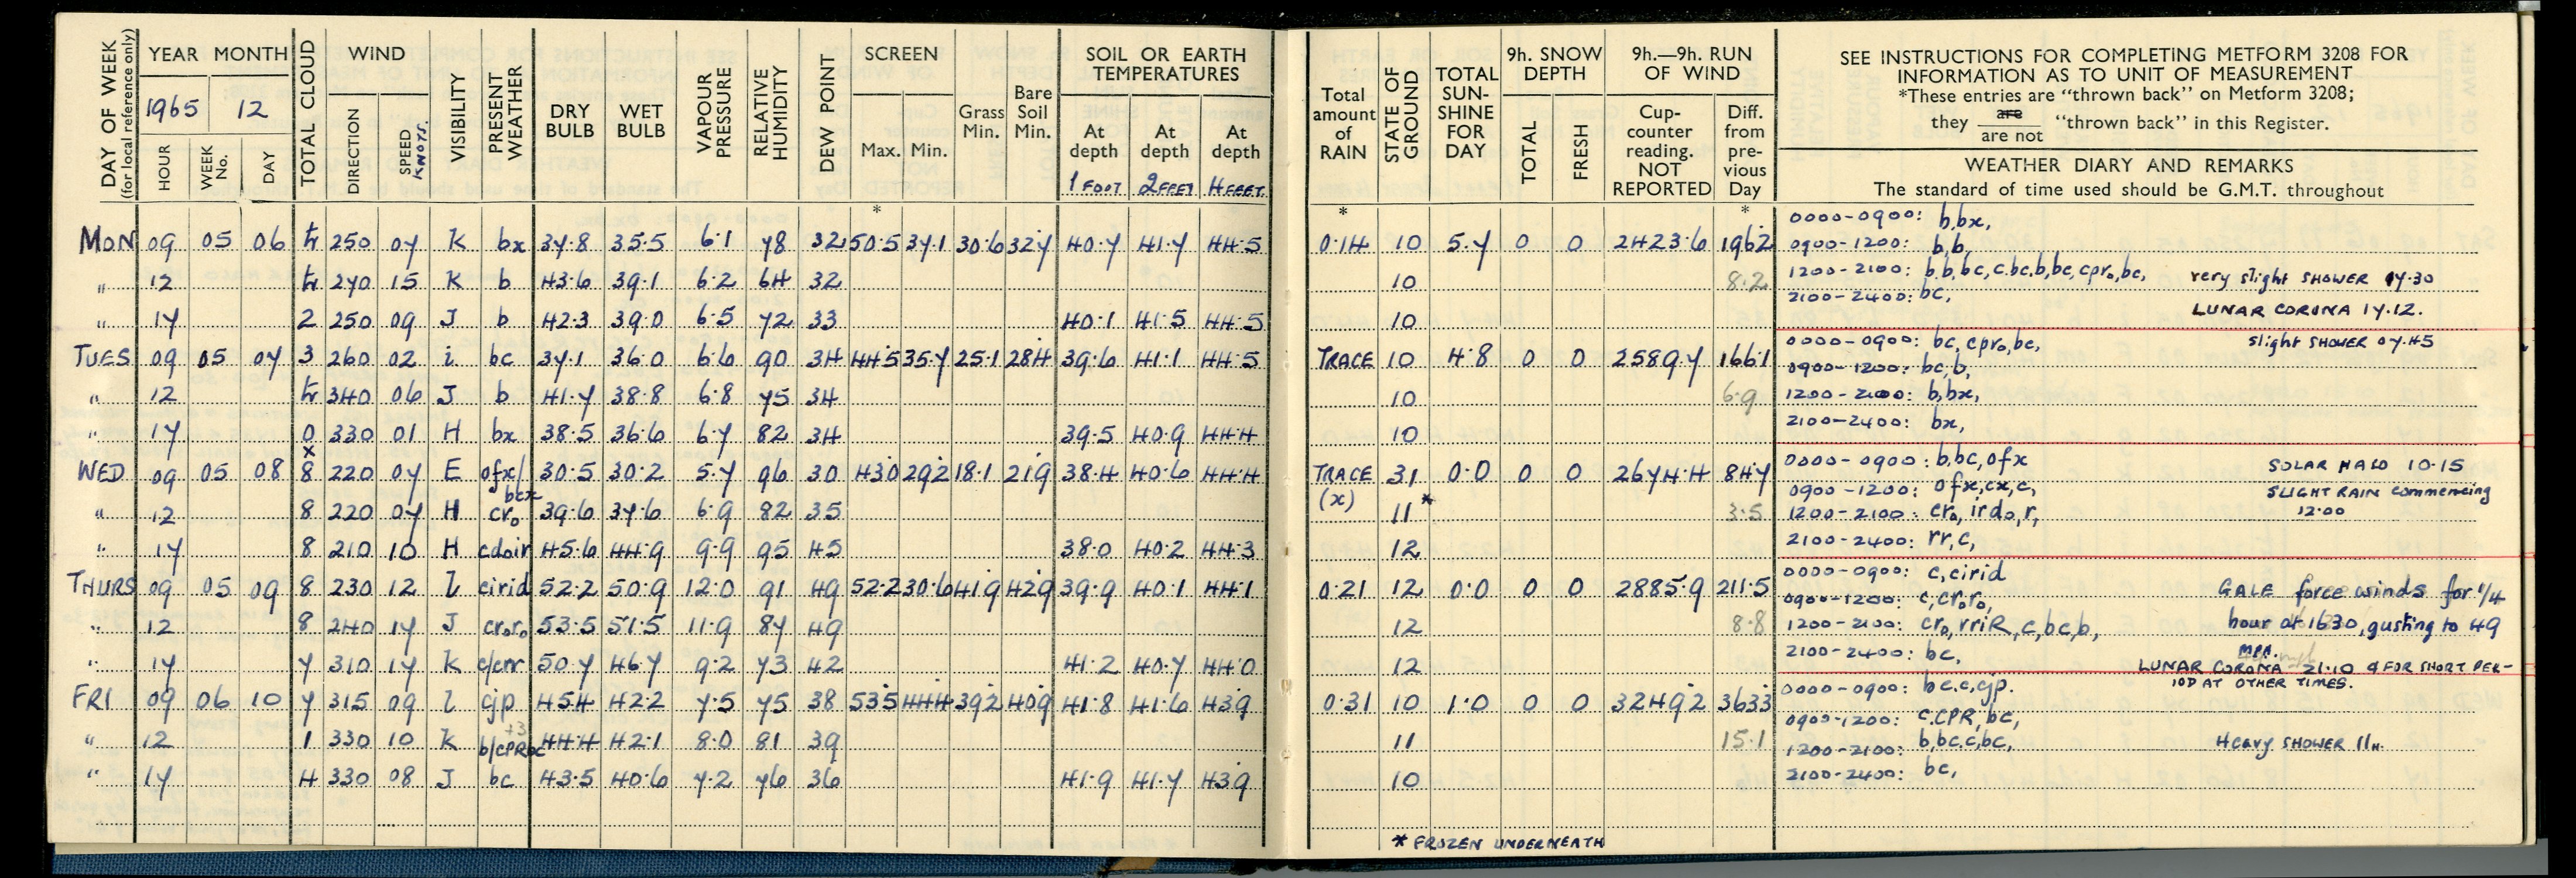 DAY OF WEEK (for local reference only)
YEAR MONTH
1965 12
HOUR WEEK No. DAY
TOTAL CLOUD
WIND
DIRECTION SPEED KNOTS.
VISIBILITY
PRESENT WEATHER
DRY BULB
WET BULB
VAPOUR PRESSURE
RELATIVE HUMIDITY
DEW POINT
SCREEN
Max. Min.
Grass Min.
Bare Soil Min.
SOIL OR EARTH TEMPERATURES
At depth At depth At depth
1 FOOT 2 FEET 4 FEET
Total amount of RAIN
STATE OF GROUND
TOTAL SUN-SHINE FOR DAY
9h. SNOW DEPTH
TOTAL FRESH
9h.—9h. RUN OF WIND
Cup-counter reading. NOT REPORTED
Diff. from pre-vious Day
SEE INSTRUCTIONS FOR COMPLETING METFORM 3208 FOR
INFORMATION AS TO UNIT OF MEASUREMENT
*These entries are "thrown back" on Metform 3208;
they are / are not "thrown back" in this Register.
WEATHER DIARY AND REMARKS
The standard of time used should be G.M.T. throughout
* * *
MON 09 05 06 tr 250 07 K bx 37.8 35.5 6.1 78 32 50.5 37.1 30.6 32.7 40.7 41.7 44.5 0.14 10 5.7 0 0 2423.6 196.2
0000-0900: b,bx,
0900-1200: b,b,
" 12 tr 270 15 K b 43.6 39.1 6.2 64 32 10 8.2
1200-2100: b,b,bc,c,bc,b,bc,cpr₀,bc, very slight SHOWER 17.30
2100-2400: bc,
" 17 2 250 09 J b 42.3 39.0 6.5 72 33 40.1 41.5 44.5 10
LUNAR CORONA 17.12.
TUES 09 05 07 3 260 02 i bc 37.1 36.0 6.6 90 34 44.5 35.7 25.1 28.4 39.6 41.1 44.5 TRACE 10 4.8 0 0 2589.7 166.1
0000-0900: bc, cpr₀, bc, slight SHOWER 07.45
0900-1200: bc,b,
" 12 tr 340 06 J b 41.7 38.8 6.8 75 34 10 6.9
1200-2100: b,bx,
" 17 0 330 01 H bx 38.5 36.6 6.7 82 34 39.5 40.9 44.4 10
2100-2400: bx,
x
WED 09 05 08 8 220 07 E ofx/bcx 30.5 30.2 5.7 96 30 43.0 29.2 18.1 21.9 38.4 40.6 44.4 TRACE (x) 31 0.0 0 0 2674.4 84.7
0000-0900: b,bc,ofx SOLAR HALO 10.15
0900-1200: ofx,cx,c, SLIGHT RAIN commencing 12.00
" 12 8 220 07 H cr₀ 39.6 37.6 6.9 82 35 11* 3.5
1200-2100: cr₀, ird₀, r,
" 17 8 210 10 H cd₀ir 45.6 44.9 9.9 95 45 38.0 40.2 44.3 12
2100-2400: rr,c,
THURS 09 05 09 8 230 12 l cirid 52.2 50.9 12.0 91 49 52.2 30.6 41.9 42.9 39.9 40.1 44.1 0.21 12 0.0 0 0 2885.9 211.5
0000-0900: c,cirid
0900-1200: c,cr₀r₀,
GALE force winds for 1/4
" 12 8 240 17 J cr₀r₀ 53.5 51.5 11.9 87 49 12 8.8
1200-2100: cr₀,rriR,c,bc,b, hour at 1630, gusting to 49
MPH.
" 17 7 310 17 K c/crr 50.7 46.7 9.2 73 42 41.2 40.7 44.0 12
2100-2400: bc,
LUNAR CORONA 21.10 & FOR SHORT PER-
IOD AT OTHER TIMES.
FRI 09 06 10 7 315 09 l cjp 45.4 42.2 7.5 75 38 53.5 44.4 39.2 40.9 41.8 41.6 43.9 0.31 10 1.0 0 0 3249.2 363.3
0000-0900: bc,c,cjp.
0900-1200: c.CPR,bc,
" 12 1 330 10 K b/CPRbc 44.4 42.1 8.0 81 39 11 15.1
1200-2100: b,bc,c,bc, Heavy SHOWER 11H.
" 17 4 330 08 J bc 43.5 40.6 7.2 76 36 41.9 41.7 43.9 10
2100-2400: bc,
* FROZEN UNDERNEATH